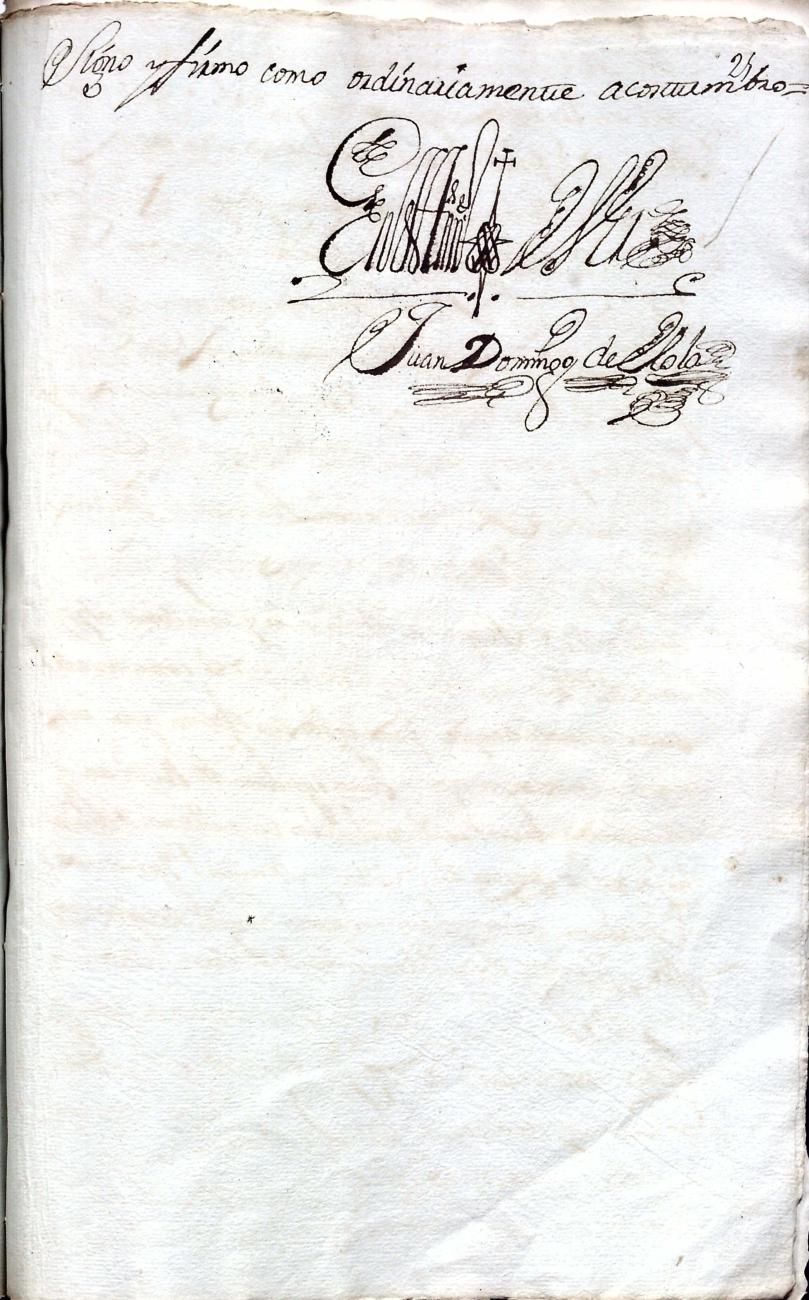 21
Signo y firmo como ordinariamente acostumbro=
En testim.º de Verdad
Juan Domingo de